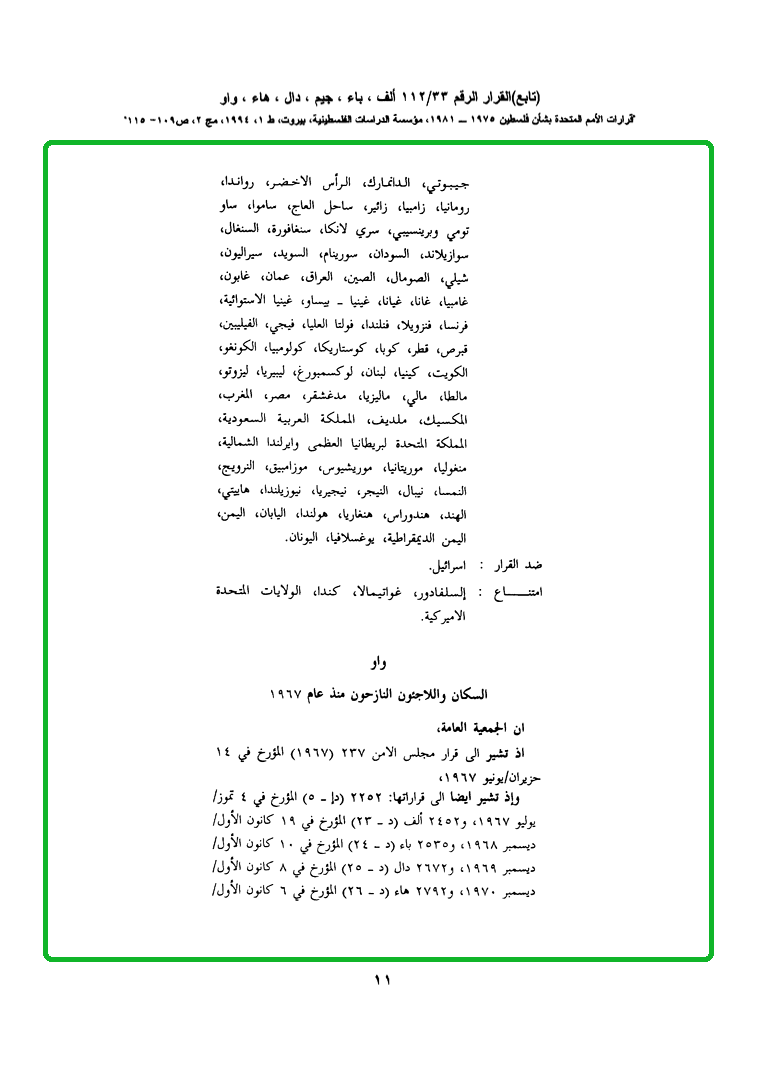 (تابع)القرار الرقم ١١٢/٣٣ ألف ، باء ، جيم ، دال ، هاء ، واو
"قرارات الأمم المتحدة بشأن فلسطين ١٩٧٥ ــ ١٩٨١، مؤسسة الدراسات الفلسطينية، بيروت، ط ١، ١٩٩٤، مج ٢، ص١٠٩- ١١٥"
جيبوتي، الدانمارك، الرأس الاخضر، رواندا،
رومانيا، زامبيا، زائير، ساحل العاج، ساموا، ساو
تومي وبرينسيبي، سري لانكا، سنغافورة، السنغال،
سوازيلاند، السودان، سورينام، السويد، سيراليون،
شيلي، الصومال، الصين، العراق، عمان، غابون،
غامبيا، غانا، غيانا، غينيا ـ بيساو، غينيا الاستوائية،
فرنسا، فنزويلا، فنلندا، فولتا العليا، فيجي، الفيليبين،
قبرص، قطر، كوبا، كوستاريكا، كولومبيا، الكونغو،
الكويت، كينيا، لبنان، لوكسمبورغ، ليبيريا، ليزوتو،
مالطا، مالي، ماليزيا، مدغشقر، مصر، المغرب،
المكسيك، ملديف، المملكة العربية السعودية،
المملكة المتحدة لبريطانيا العظمى وايرلندا الشمالية،
منغوليا، موريتانيا، موريشيوس، موزامبيق، النرويج،
النمسا، نيبال، النيجر، نيجيريا، نيوزيلندا، هاييتي،
الهند، هندوراس، هنغاريا، هولندا، اليابان، اليمن،
اليمن الديمقراطية، يوغسلافيا، اليونان.
ضد القرار : اسرائيل.
امتنـــــاع : إلسلفادور، غواتيمالا، كندا، الولايات المتحدة
الاميركية.
واو
السكان واللاجئون النازحون منذ عام ١٩٦٧
ان الجمعية العامة،
اذ تشير الى قرار مجلس الامن ٢٣٧ (١٩٦٧) المؤرخ في ١٤
حزيران/يونيو ١٩٦٧،
وإذ تشير ايضا الى قراراتها: ٢٢٥٢ (دإ ـ ٥) المؤرخ في ٤ تموز/
يوليو ١٩٦٧، و٢٤٥٢ ألف (د ـ ٢٣) المؤرخ في ١٩ كانون الأول/
ديسمبر ١٩٦٨، و٢٥٣٥ باء (د ـ ٢٤) المؤرخ في ١٠ كانون الأول/
ديسمبر ١٩٦٩، و٢٦٧٢ دال (د ـ ٢٥) المؤرخ في ٨ كانون الأول/
ديسمبر ١٩٧٠، و٢٧٩٢ هاء (د ـ ٢٦) المؤرخ في ٦ كانون الأول/
١١